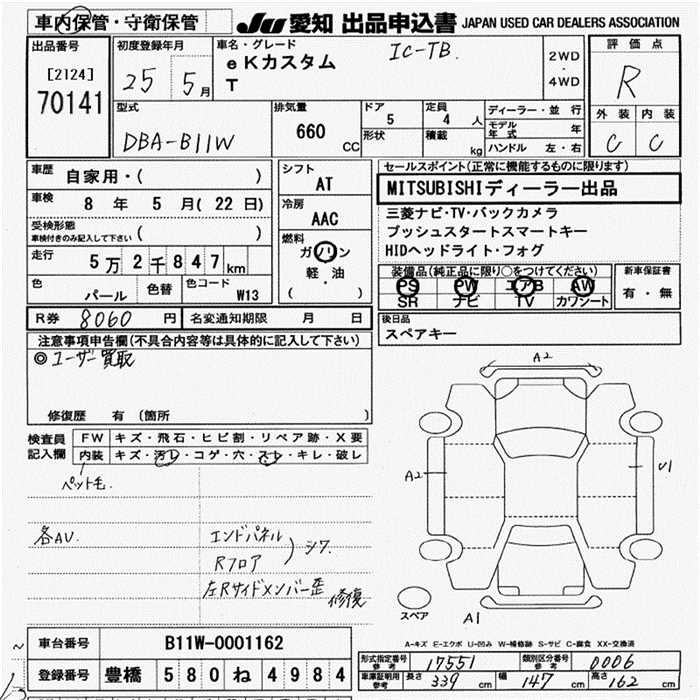 車内保管・守衛保管
JU 愛知 出品申込書 JAPAN USED CAR DEALERS ASSOCIATION
出品番号
[2124]
70141
初度登録年月
25 5月
車名・グレード
eKカスタム
T
Ic-TB.
2WD
・
4WD
評価点
R
外装 内装
C C
型式
DBA-B11W
排気量
660 cc
ドア
5
定員
4 人
形状
積載
kg
ディーラー・並行
モデル年式 年
ハンドル 左・右
車歴 自家用・( )
車検 8 年 5 月( 22 日)
受検形態
車検付きのみ記入して下さい ( )
走行 5万2千847km
色 パール 色替 色コード W13
シフト
AT
冷房
AAC
燃料
ガソリン
軽・油
( ・ )
セールスポイント(正常に機能するものに限ります)
MITSUBISHIディーラー出品
三菱ナビ・TV・バックカメラ
プッシュスタートスマートキー
HIDヘッドライト・フォグ
装備品(純正品に限り○をつけてください)
PS PW エアB AW
SR ナビ TV カワシート
新車保証書
有・無
R券 8060 円 名変通知期限 月 日
後日品
スペアキー
注意事項申告欄(不具合内容等は具体的に記入して下さい)
◎ユーザー買取
修復歴 有 (箇所 )
検査員記入欄
FW キズ・飛石・ヒビ割・リペア跡・X要
内装 キズ・汚レ・コゲ・穴・スレ・キレ・破レ
ペット毛.
各AU.
エンドパネル
Rフロア
) シワ
左Rサイドメンバー歪 修復
A2
A2
U1
A1
スペア
A-キズ E-エクボ U-凹み W-補修跡 S-サビ C-腐食 XX-交換済
車台番号 B11W-0001162
登録番号 豊橋 580 ね 4984
形式指定番号 参考 17551 類別区分番号 参考 0006
車庫証明用 参考 長さ 339 cm 幅 147 cm 高さ 162 cm